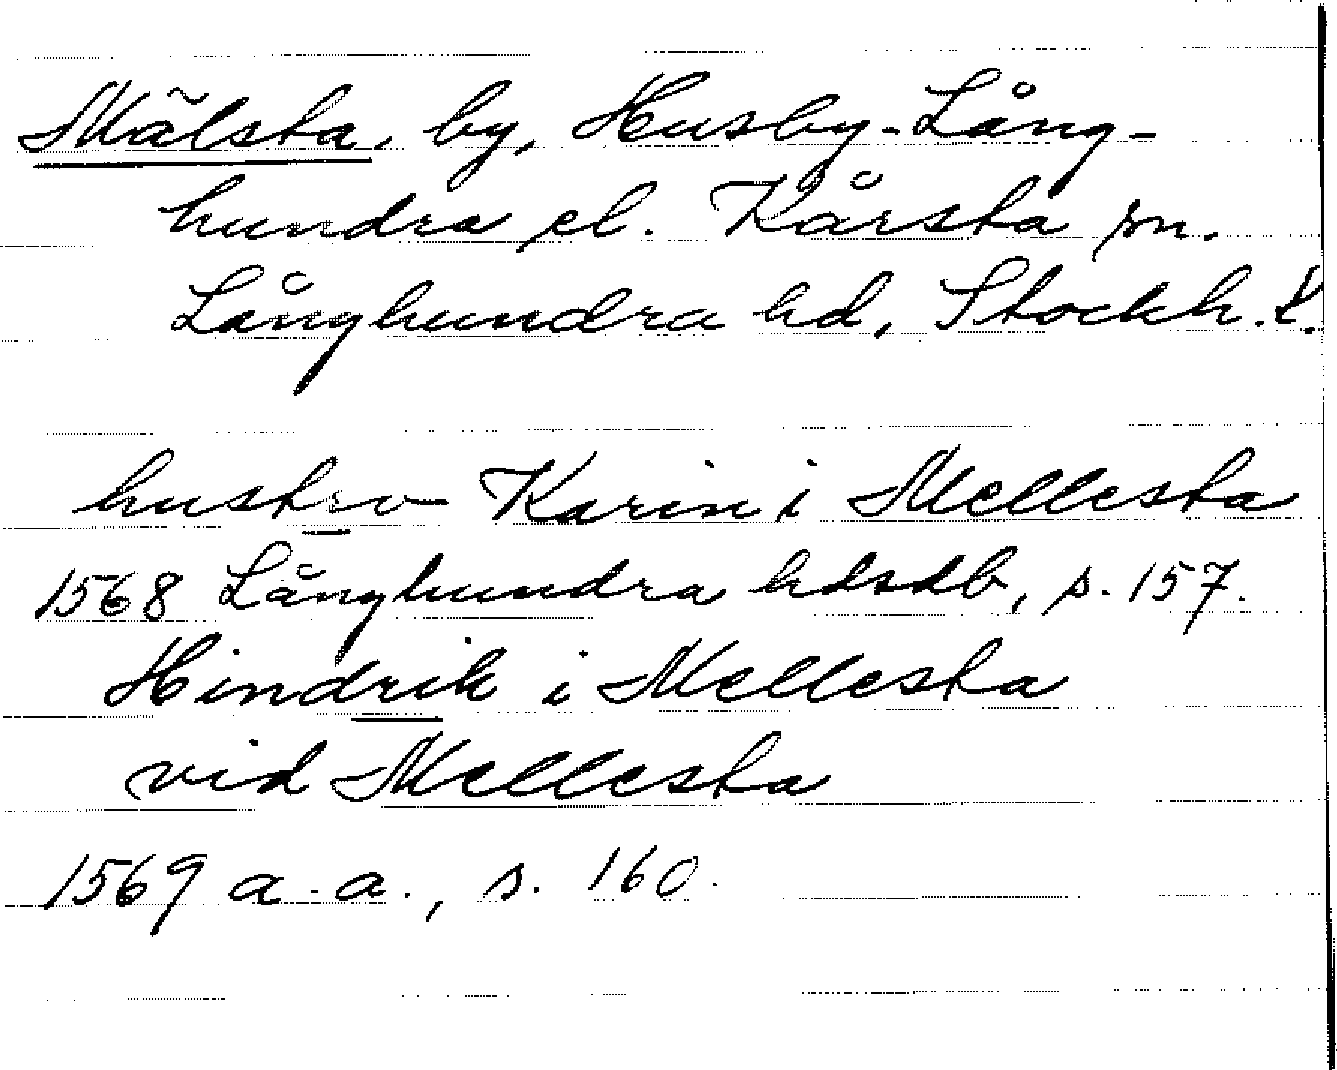 Mälsta, by, Husby-Lång-
hundra el. Kårsta sn.
Långhundra hd, Stockh. l.
hustro Karin i Mellesta
1568 Långhundra hdsdb, s. 157.
Hindrik i Mellesta
vid Mellesta
1569 a. a., s. 160.